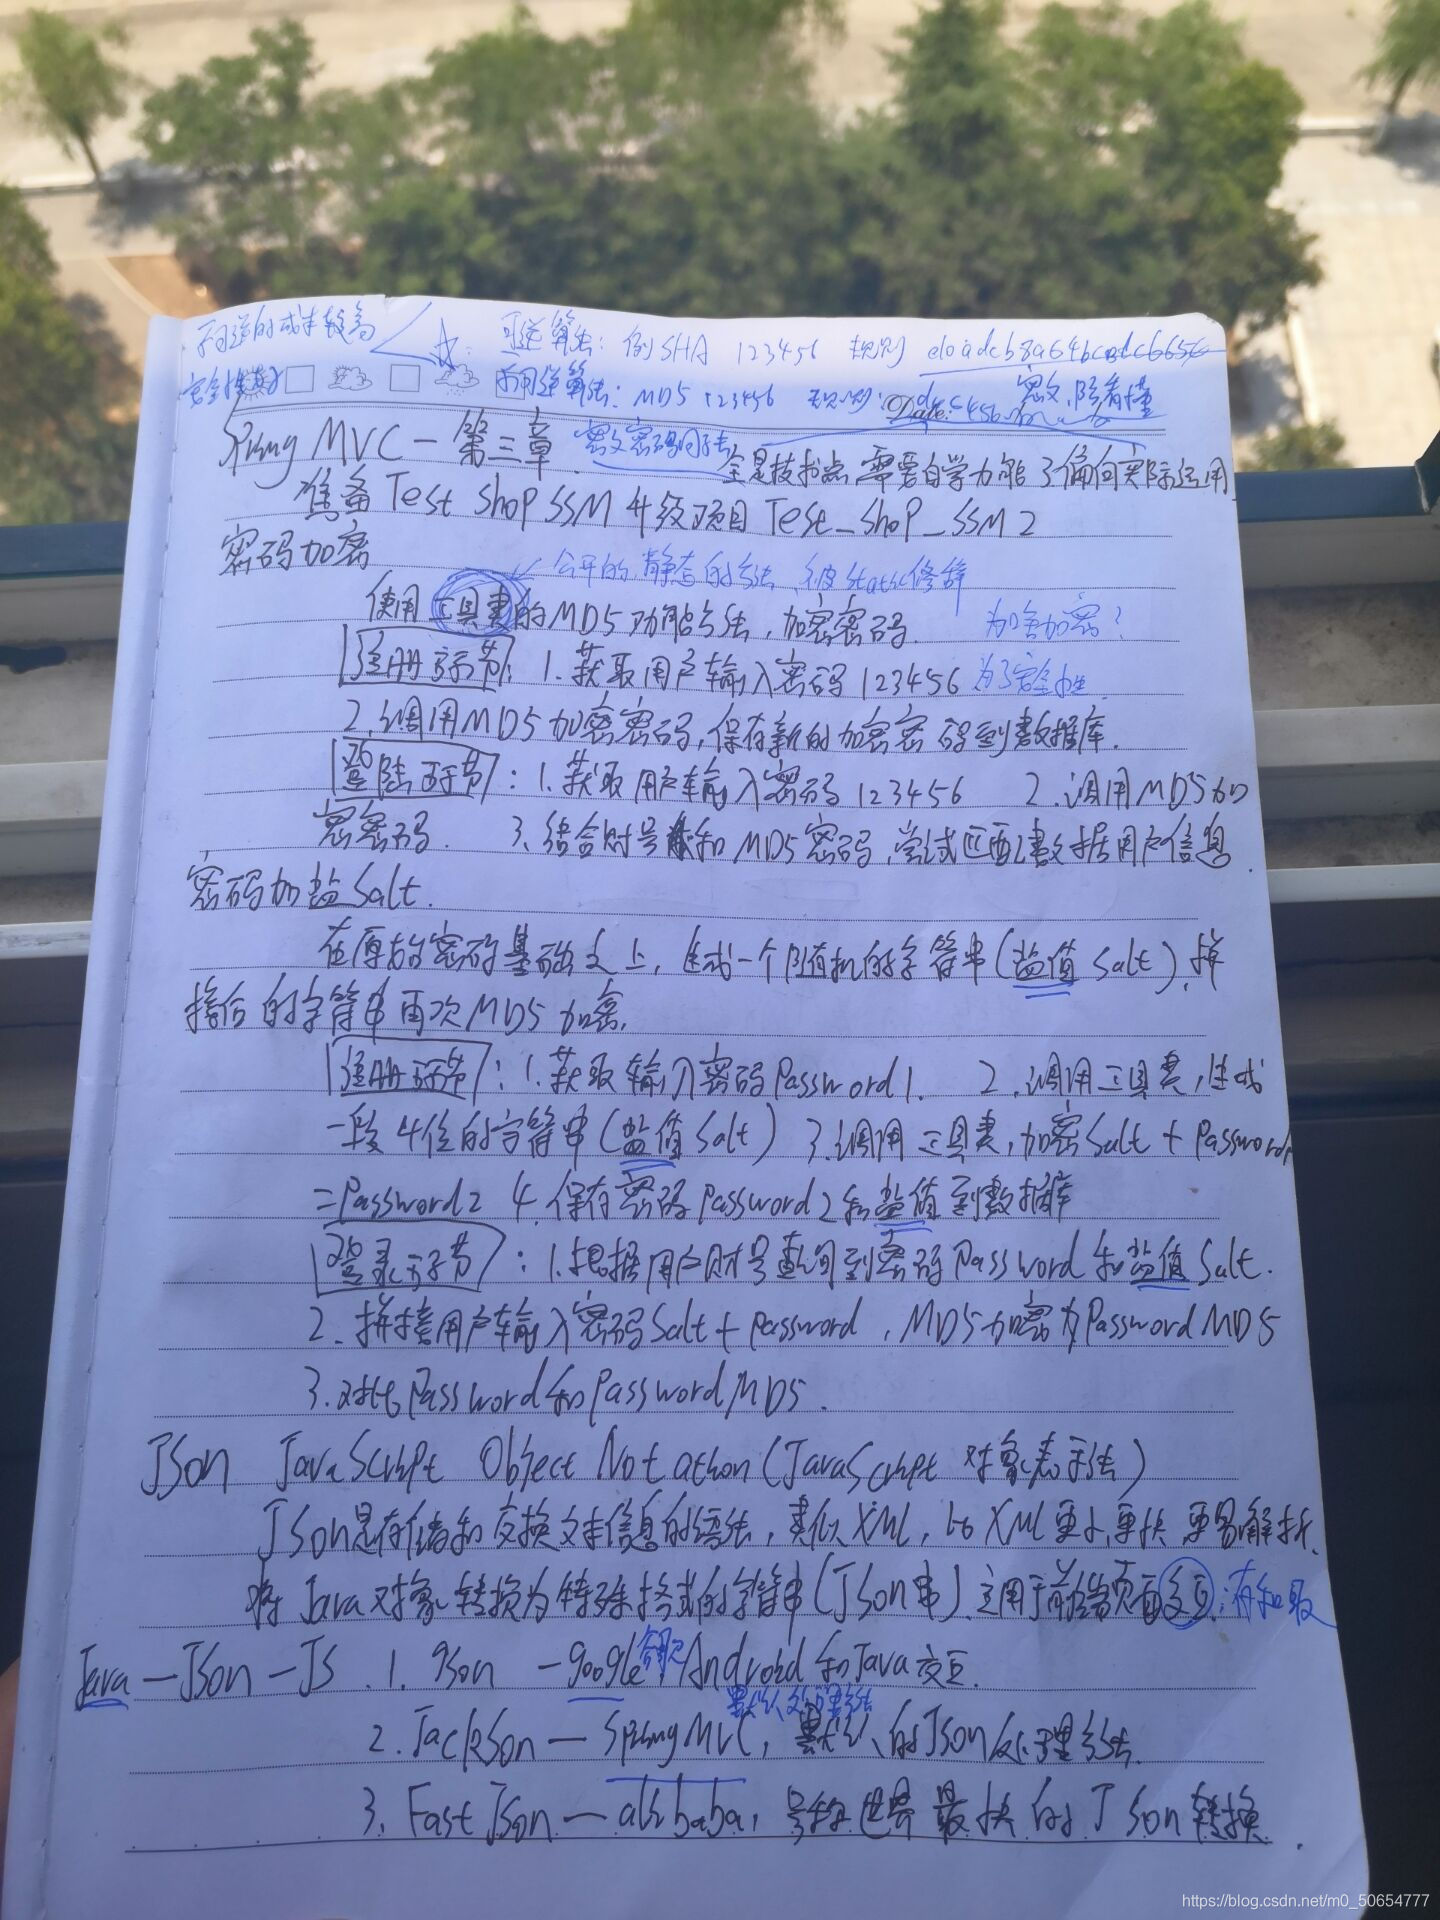 不可逆的成本较高
可逆算法：例SHA 123456 规则
安全性更好
不可逆算法：MD5 123456 规则：
密文，防看懂
Date:
Spring MVC — 第三章
密文密码同方法
全是技术点 需要自学力能了偏向实际运用
准备 Test shop SSM 升级项目 Test_shop_SSM2
密码加密
公开的，静态的方法，被static修辞
使用工具类的MD5功能方法，加密密码.
为啥加密？
注册环节： 1.获取用户输入密码 123456
为了安全性
2.调用MD5加密密码，保存新的加密密码到数据库.
登陆环节： 1.获取用户输入密码 123456 2.调用MD5加
密密码. 3.结合账号和MD5密码，尝试匹配数据用户信息.
密码加盐Salt.
在原有的密码基础之上，生成一个随机的字符串(盐值 Salt).拼
接后的字符串再次MD5加密.
注册环节： 1.获取输入密码Password1. 2.调用工具类，生成
一段4位的字符串(盐值 Salt) 3.调用工具类，加密Salt + Password1
=Password2 4.保存密码Password2和盐值到数据库
登录环节： 1.根据用户账号查询到密码Password和盐值Salt.
2.拼接用户输入密码Salt + password，MD5加密为PasswordMD5
3.对比Password和PasswordMD5.
JSon JavaScript Object Notation (JavaScript 对象表示法)
JSon是存储和交换文本信息的语法，类似XML，比XML更小更快 更易解析.
将Java对象转换为特殊格式的字符串(JSon串).主用于前端页面交互：存和取
Java — JSon — JS .1. gson — google Android和Java交互.
默认处理方法
2.JackSon — Spring MVC，默认的JSon处理方法.
3. FastJSon — alibaba，号称世界最快的JSon转换.
https://blog.csdn.net/m0_50654777